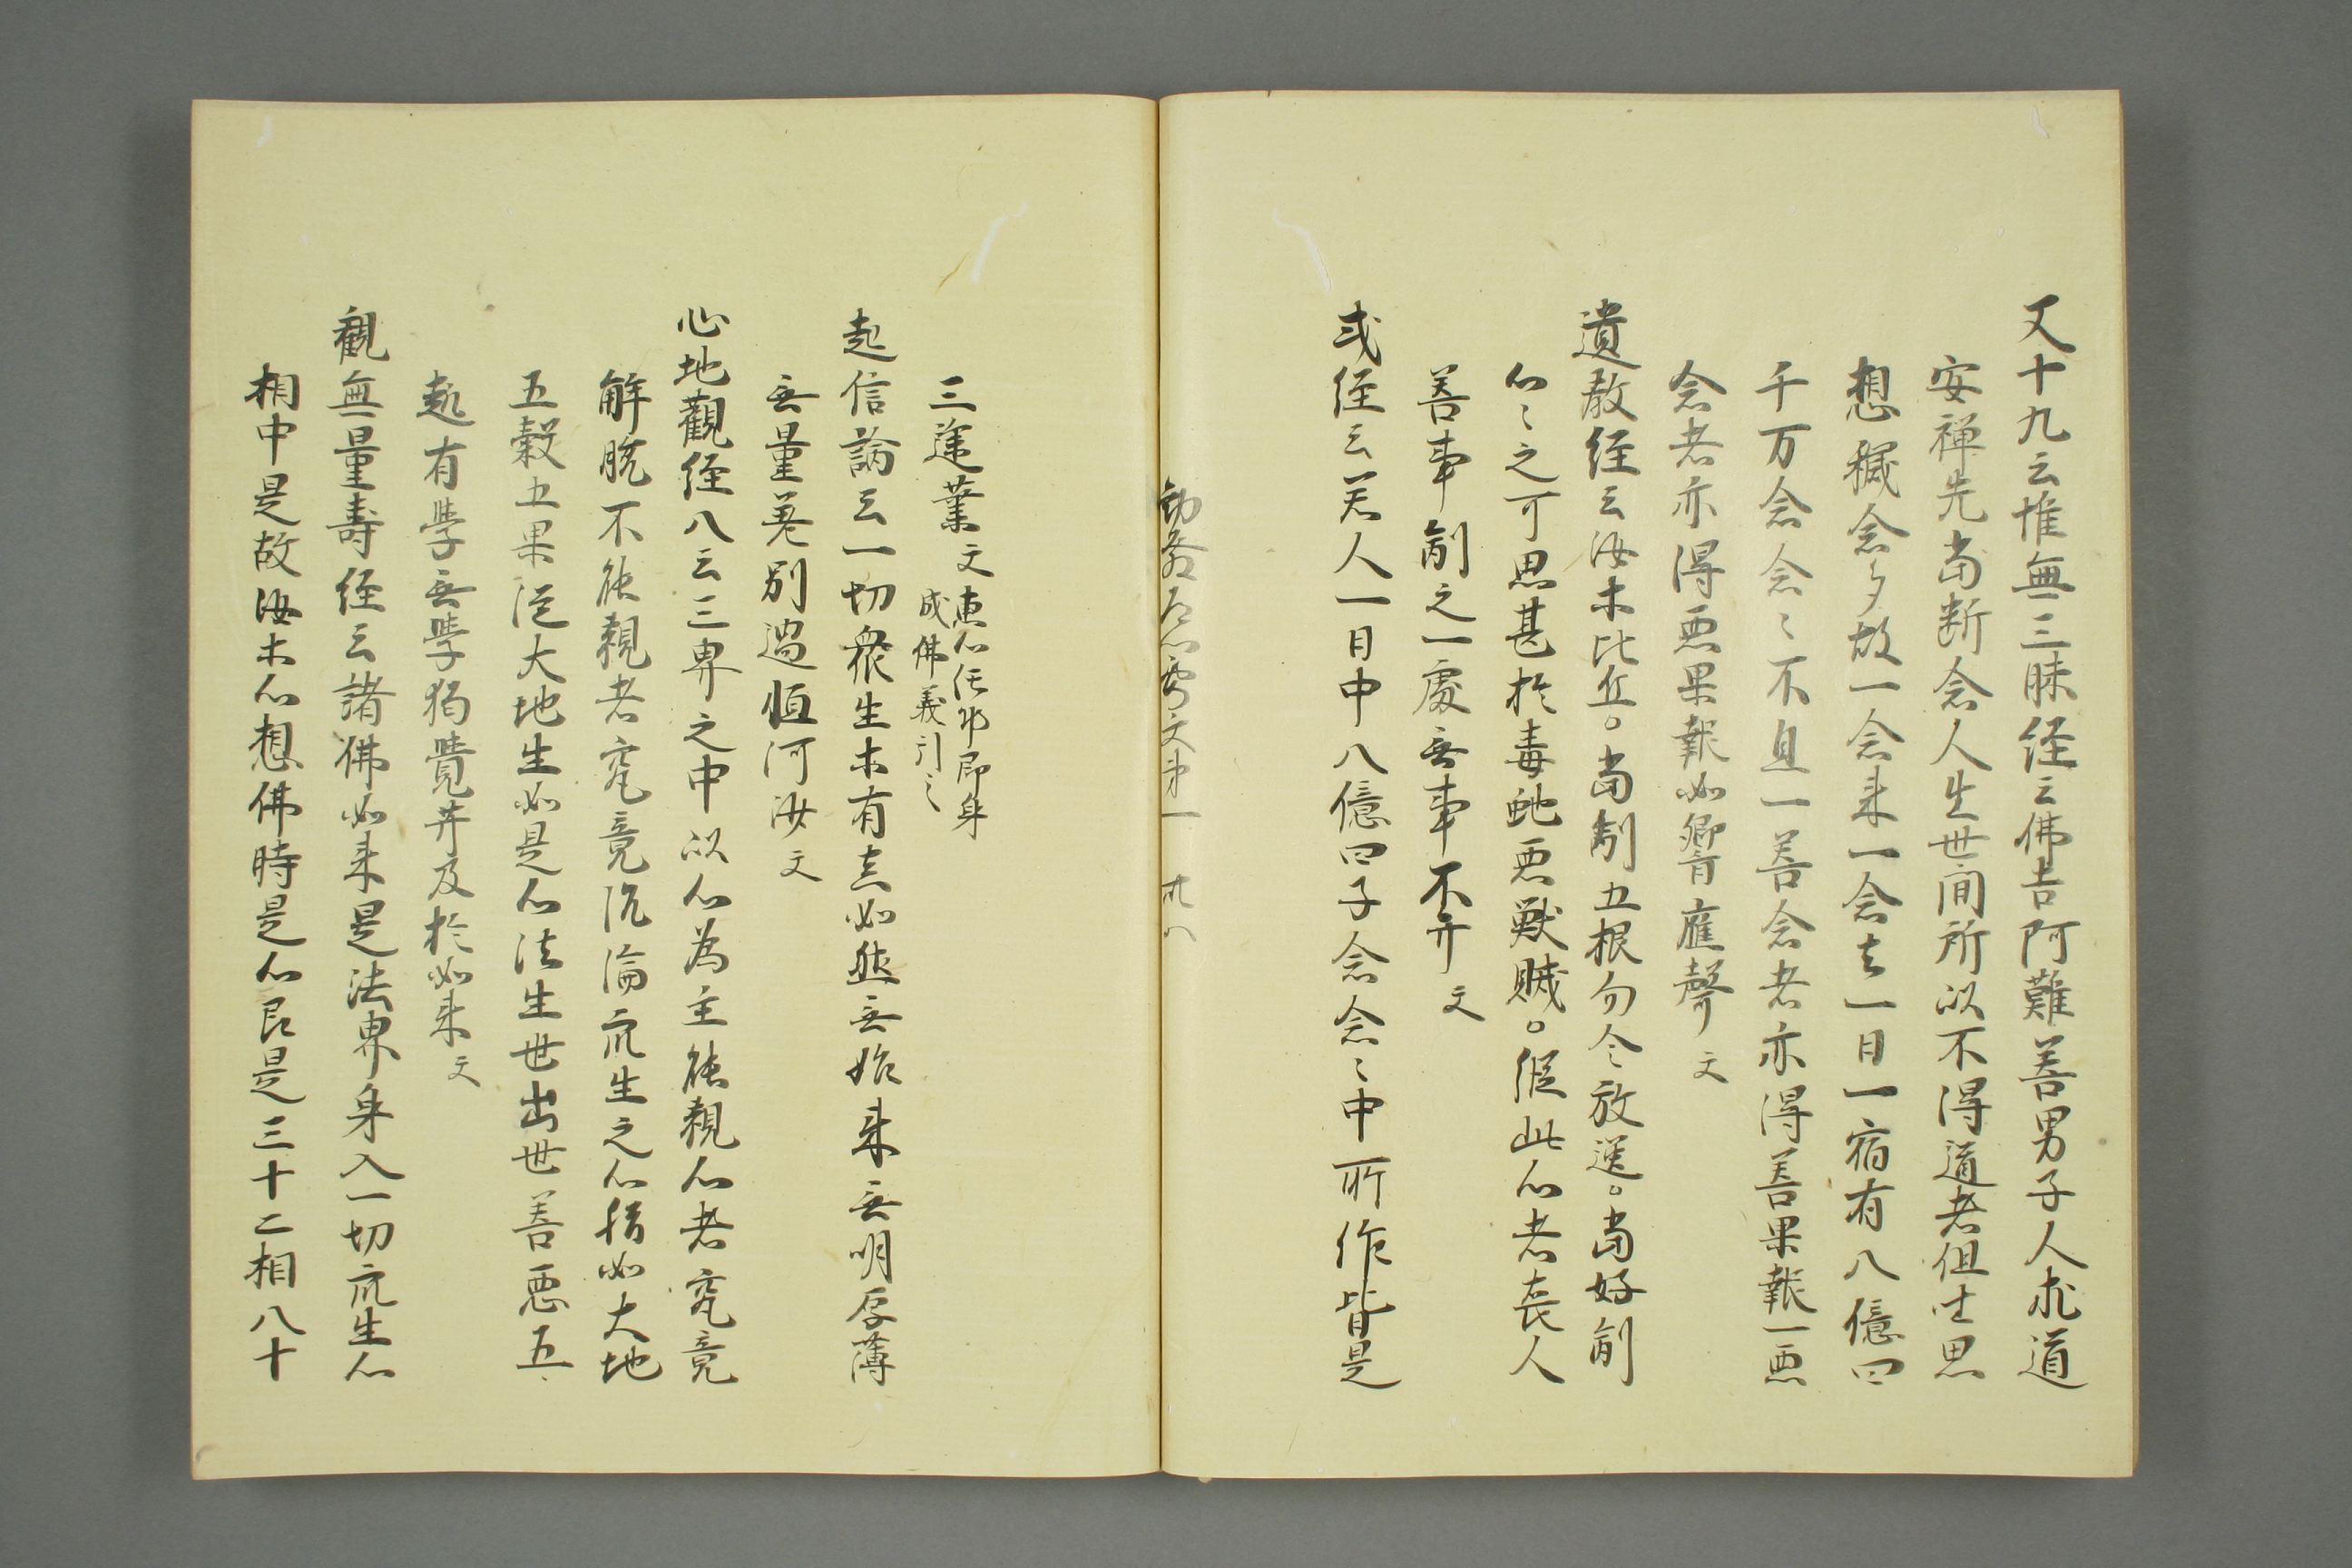 又十九云惟無三昧経云佛告阿難善男子人求道
安禅先当断念人生世间所以不得道者但坐思
想穢念多故一念来一念去一日一宿有八億四
千万念念〻不息一善念者亦得善果報一悪
念者亦得悪果報如響應聲文
遺教経云汝木比丘。当制五根勿令放逸。当好制
心〻之可畏甚於毒虵悪獣賊。縦此心者喪人
善事制之一處无事不弁文
或経云若人一日中八億四千念念〻中所作皆是
文第一
三途業文恵心
成佛義引之
起信論云一切衆生木有真如然无始来无明厚薄
无量差別過恒河沙文
心地觀経八云三界之中以心為主能観心者究竟
解脱不能観者究竟沉淪衆生之心猶如大地
五穀五果従大地生如是心法生世出世善悪五
趣有學无學獨覺并及於如来文
觀無量壽経云諸佛如来是法界身入一切衆生心
相中是故汝木心想佛時是心即是三十二相八十